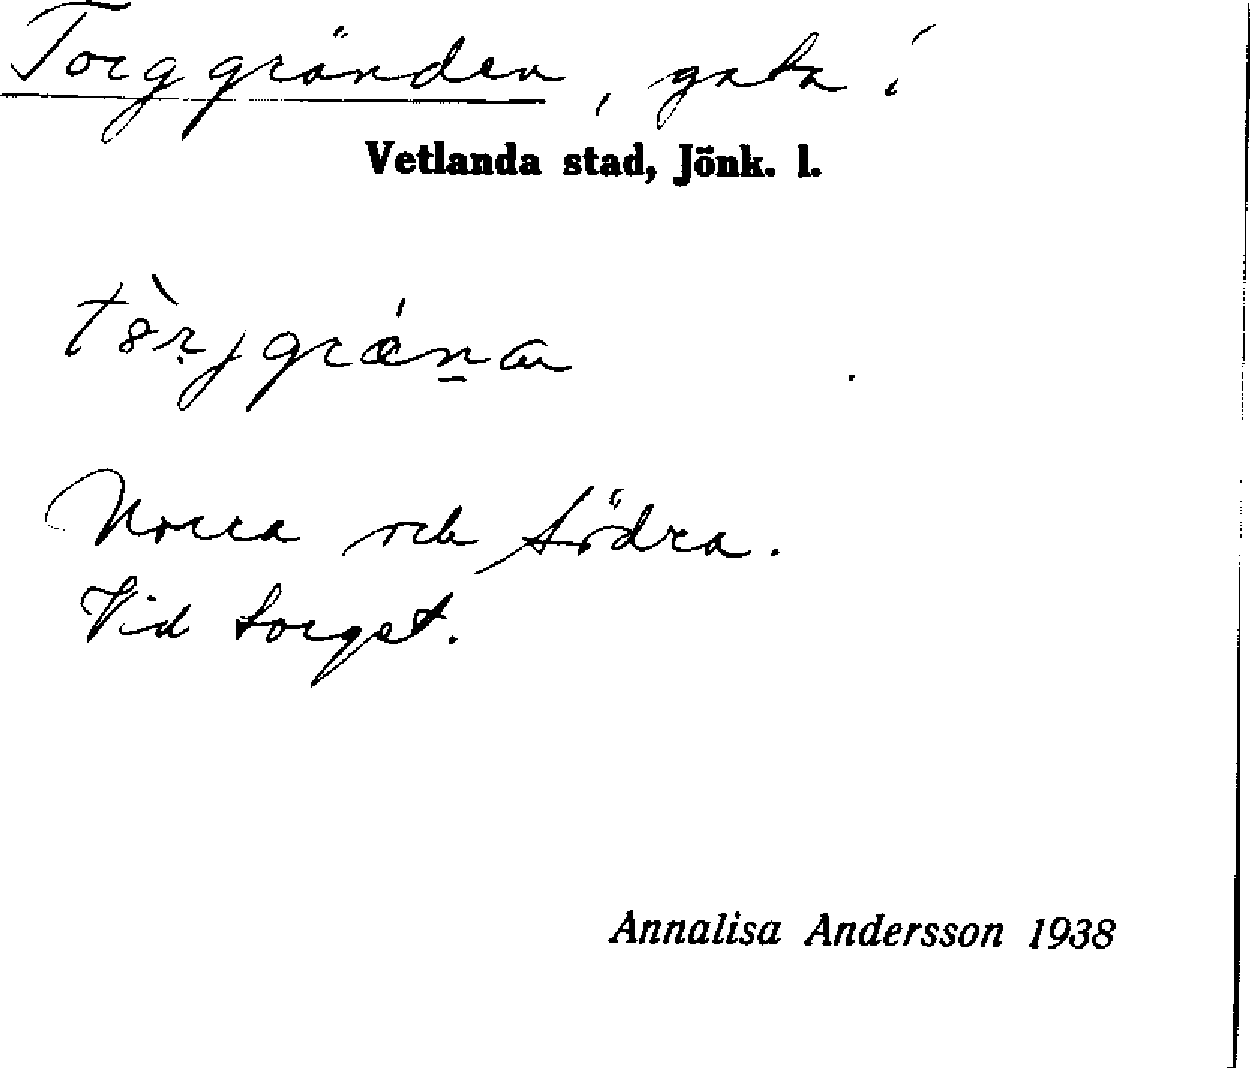 Torggränden, gata i
Vetlanda stad, Jönk. l.
Norra och södra.
Vid torget.
Annalisa Andersson 1938